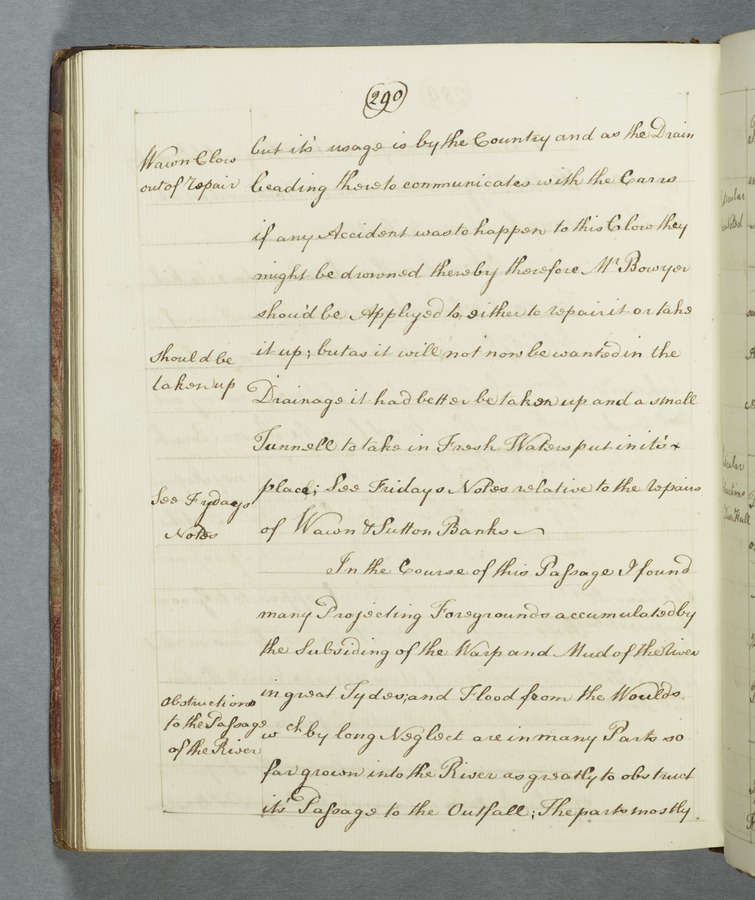 290
Wawn Clow
out of repair
but it's usage is by the Country and as the Drain
leading thereto communicates with the Carrs
if any Accident was to happen to this Clow they
might be drowned thereby therefore Mr Bowyer
shou'd be Applyed to either to repair it or take
should be
taken up
it up; but as it will not now be wanted in the
Drainage it had better be taken up and a small
Tunnell to take in Fresh Waters put in it's
place; See Fridays Notes relative to the repairs
See Frydays
Notes
of Wawn & Sutton Banks
In the Course of this Passage I found
many Projecting Foregrounds accumulated by
the Subsiding of the Warp and Mud of the River
in great Tydes; and Flood from the Woulds
Obstructions
to the Passage
of the River
wch by long Neglect are in many Parts so
far grown into the River as greatly to obstruct
it's Passage to the Outfall; The parts mostly